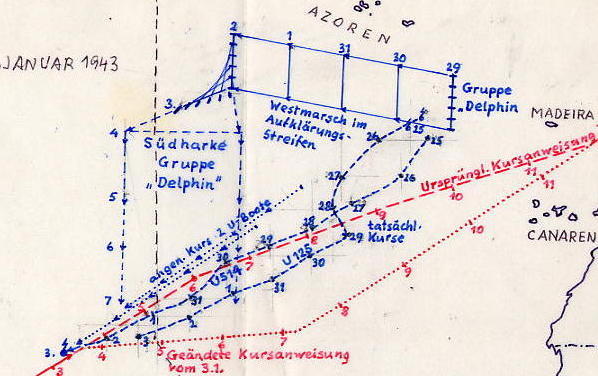 AZOREN
JANUAR 1943
2
1
31
30
29
Gruppe
„Delphin
3.
Westmarsch im
Aufklärungs-
Streifen
MADEIRA
4
Südharke
Gruppe
„Delphin"
15
15
26
Ursprüngl. Kursanweisung
11
11
27
16
10
5
28
17
9
tatsächl.
Kurse
CANAREN
angen. Kurs 2 U-Boote
18
8
29
10
6
29
30
7
U 125
30
9
U514
6
31
7
31
1
8
5
1
2
2
3
7
4
3.
4
5
6
Geänderte Kursanweisung
vom 3.1.
3